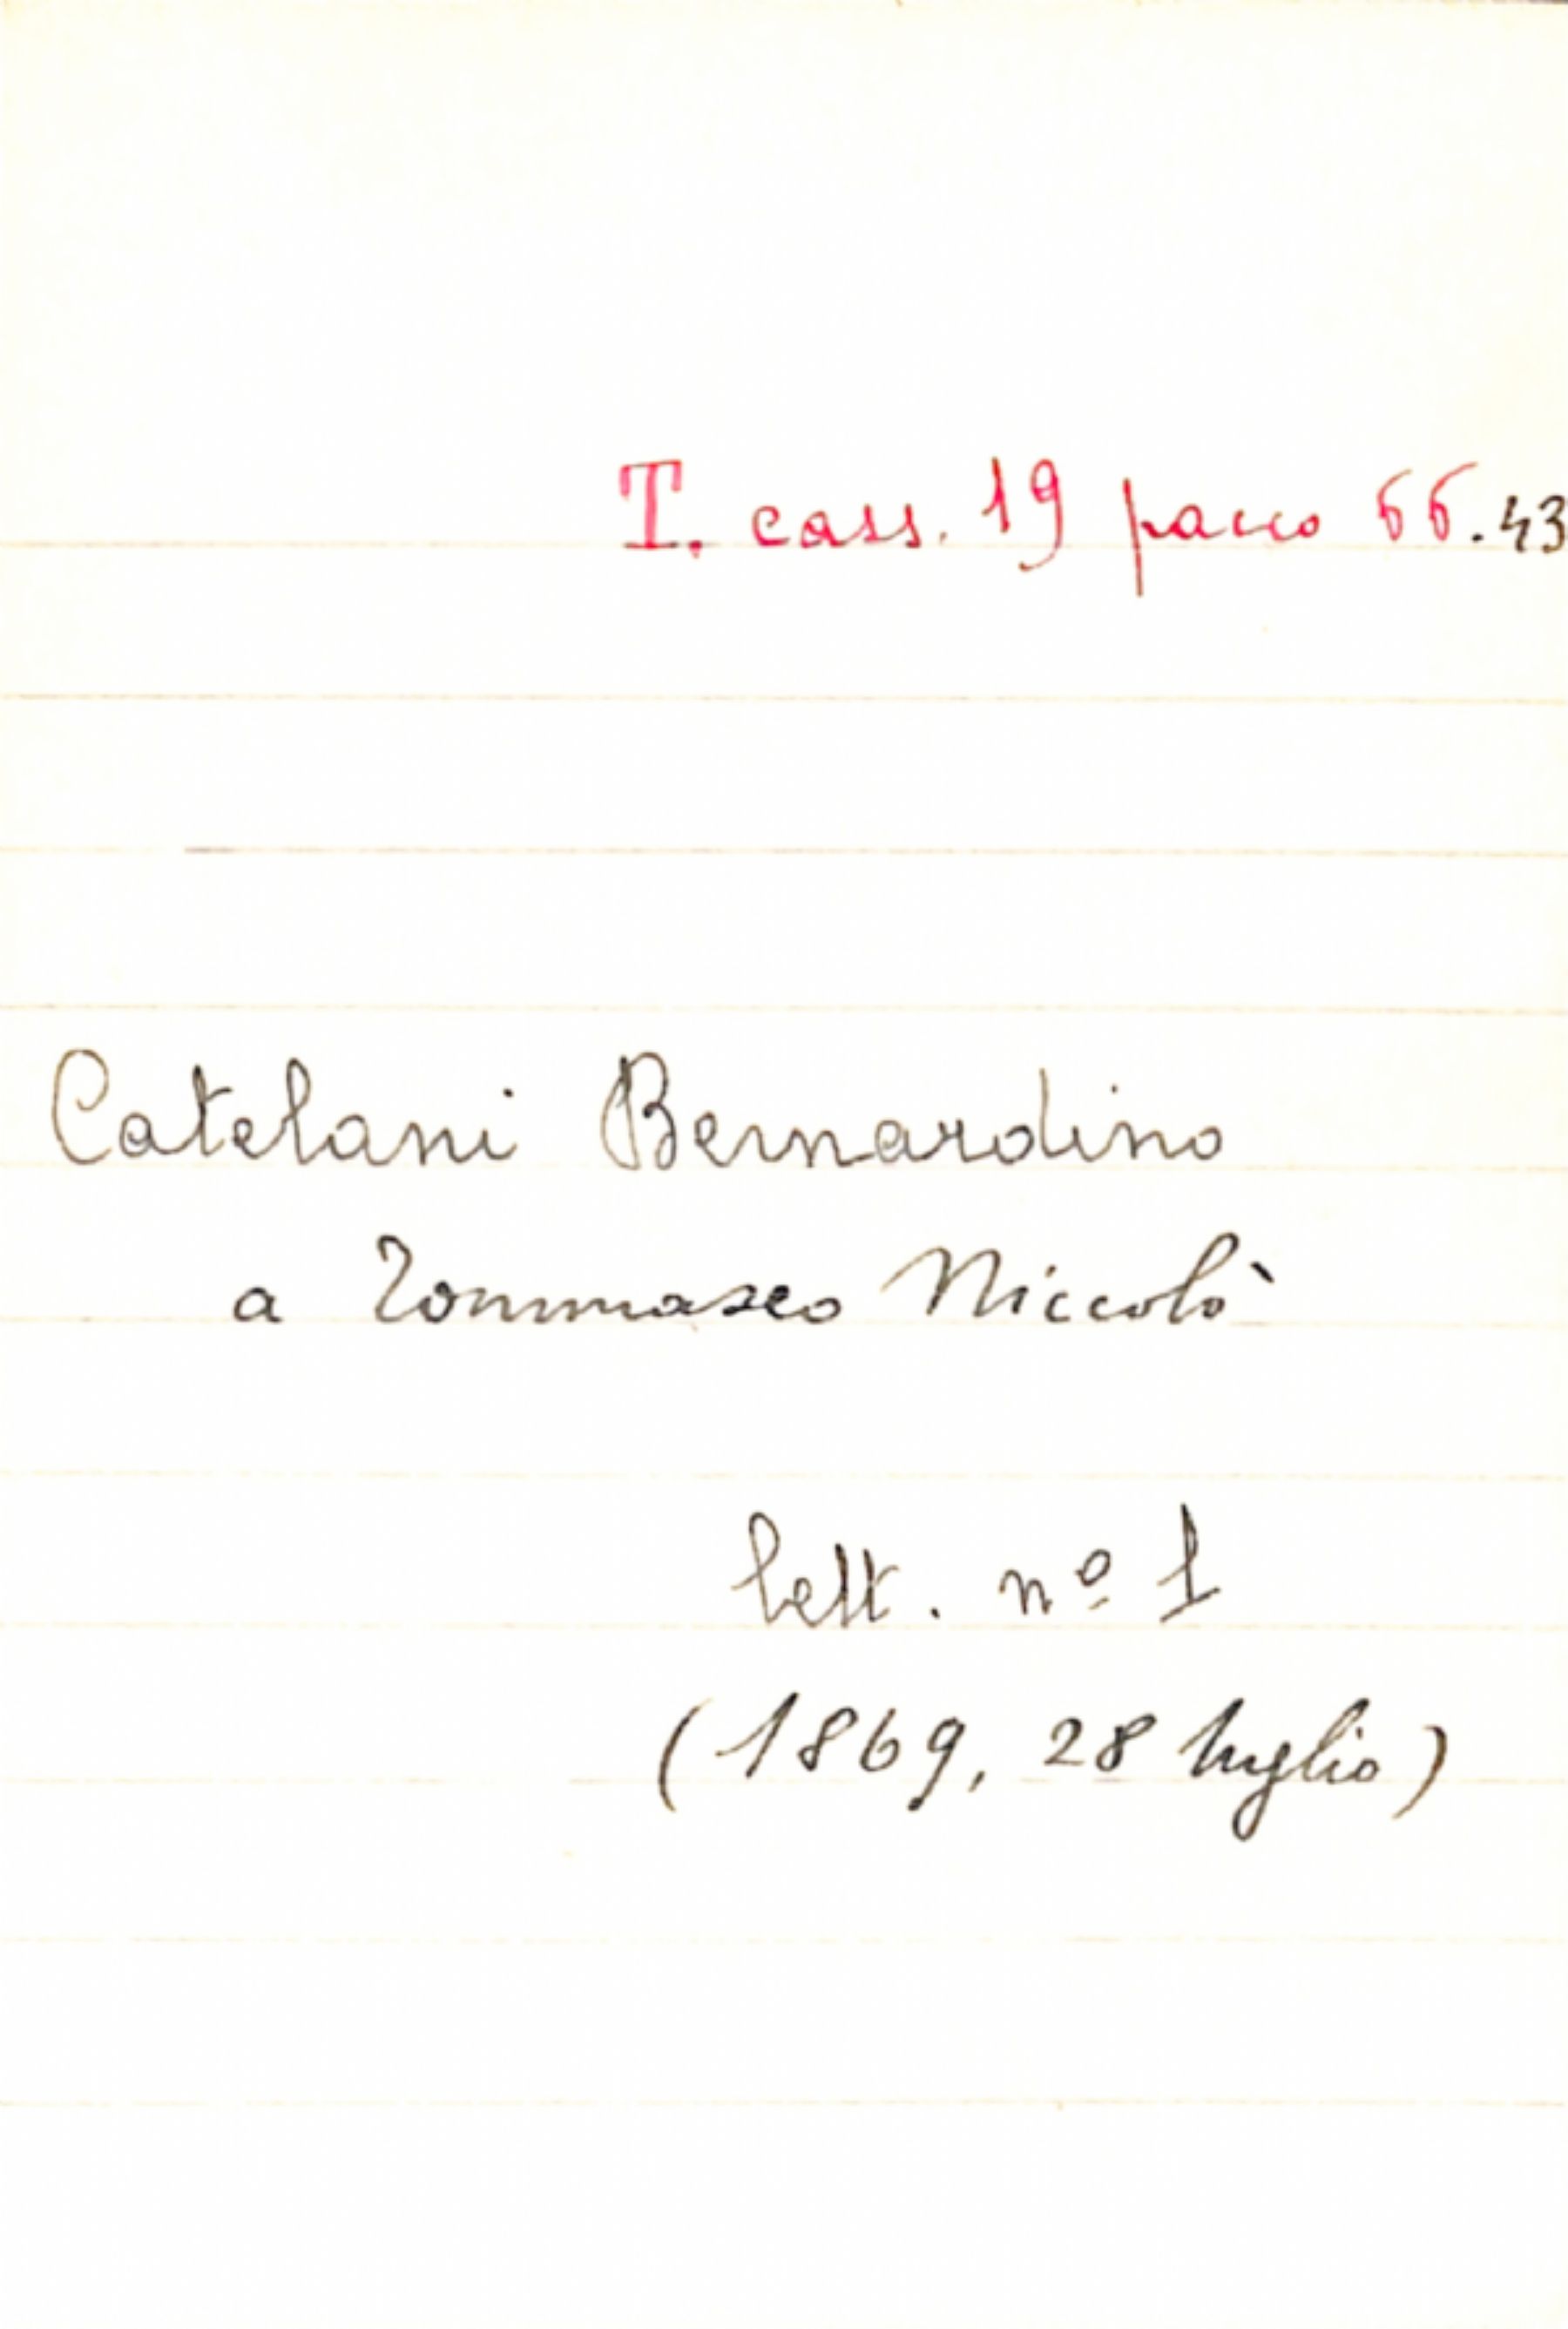 T. cass. 19 pacco 66.43
Catelani Bernardino
a Tommaseo Niccolò
lett. nº 1
(1869, 28 luglio)